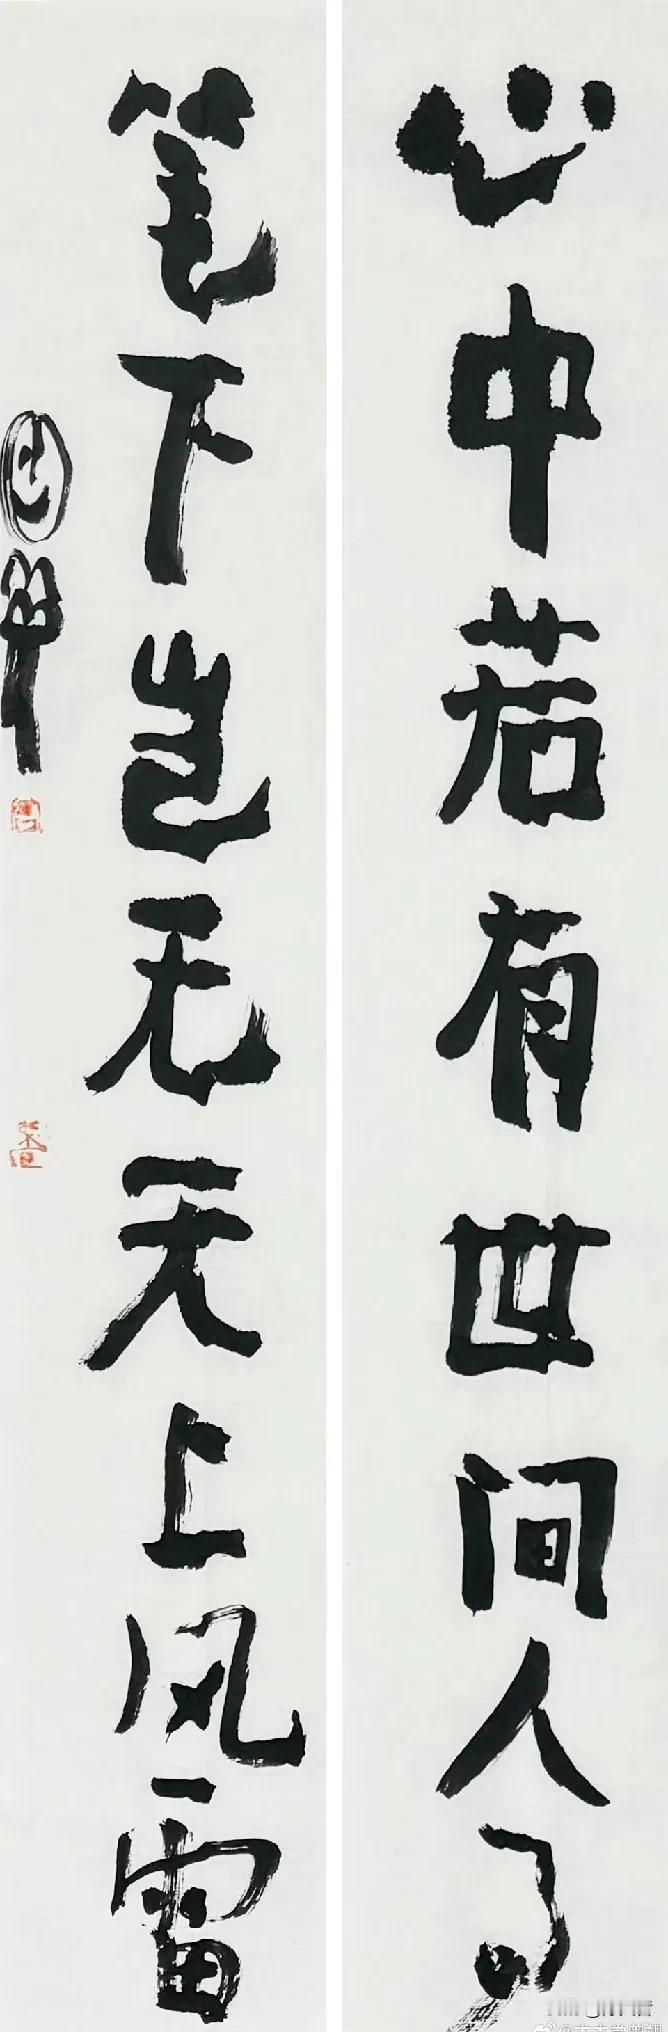 心中若有世间人子
笔下岂无天上风雷